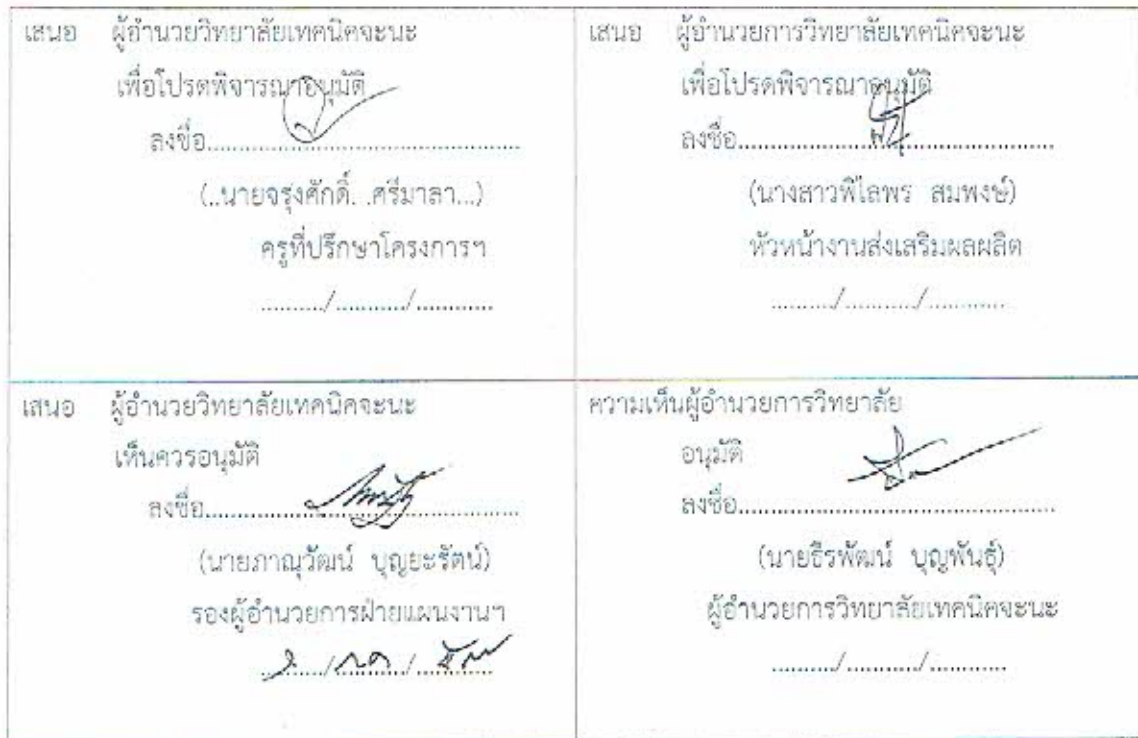 เสนอ ผู้อำนวยวิทยาลัยเทคนิคจะนะ
เพื่อโปรดพิจารณาอนุมัติ
ลงชื่อ..............................................
(..นายจรุงศักดิ์. .ศรีมาลา...)
ครูที่ปรึกษาโครงการฯ
........../........../............
เสนอ ผู้อำนวยการวิทยาลัยเทคนิคจะนะ
เพื่อโปรดพิจารณาอนุมัติ
ลงชื่อ..............................................
(นางสาวพิไลพร สมพงษ์)
หัวหน้างานส่งเสริมผลผลิต
........../........../............
เสนอ ผู้อำนวยวิทยาลัยเทคนิคจะนะ
เห็นควรอนุมัติ
ลงชื่อ..............................................
(นายภาณุวัฒน์ บุญยะรัตน์)
รองผู้อำนวยการฝ่ายแผนงานฯ
ความเห็นผู้อำนวยการวิทยาลัย
อนุมัติ
ลงชื่อ..............................................
(นายธีรพัฒน์ บุญพันธุ์)
ผู้อำนวยการวิทยาลัยเทคนิคจะนะ
........../........../............